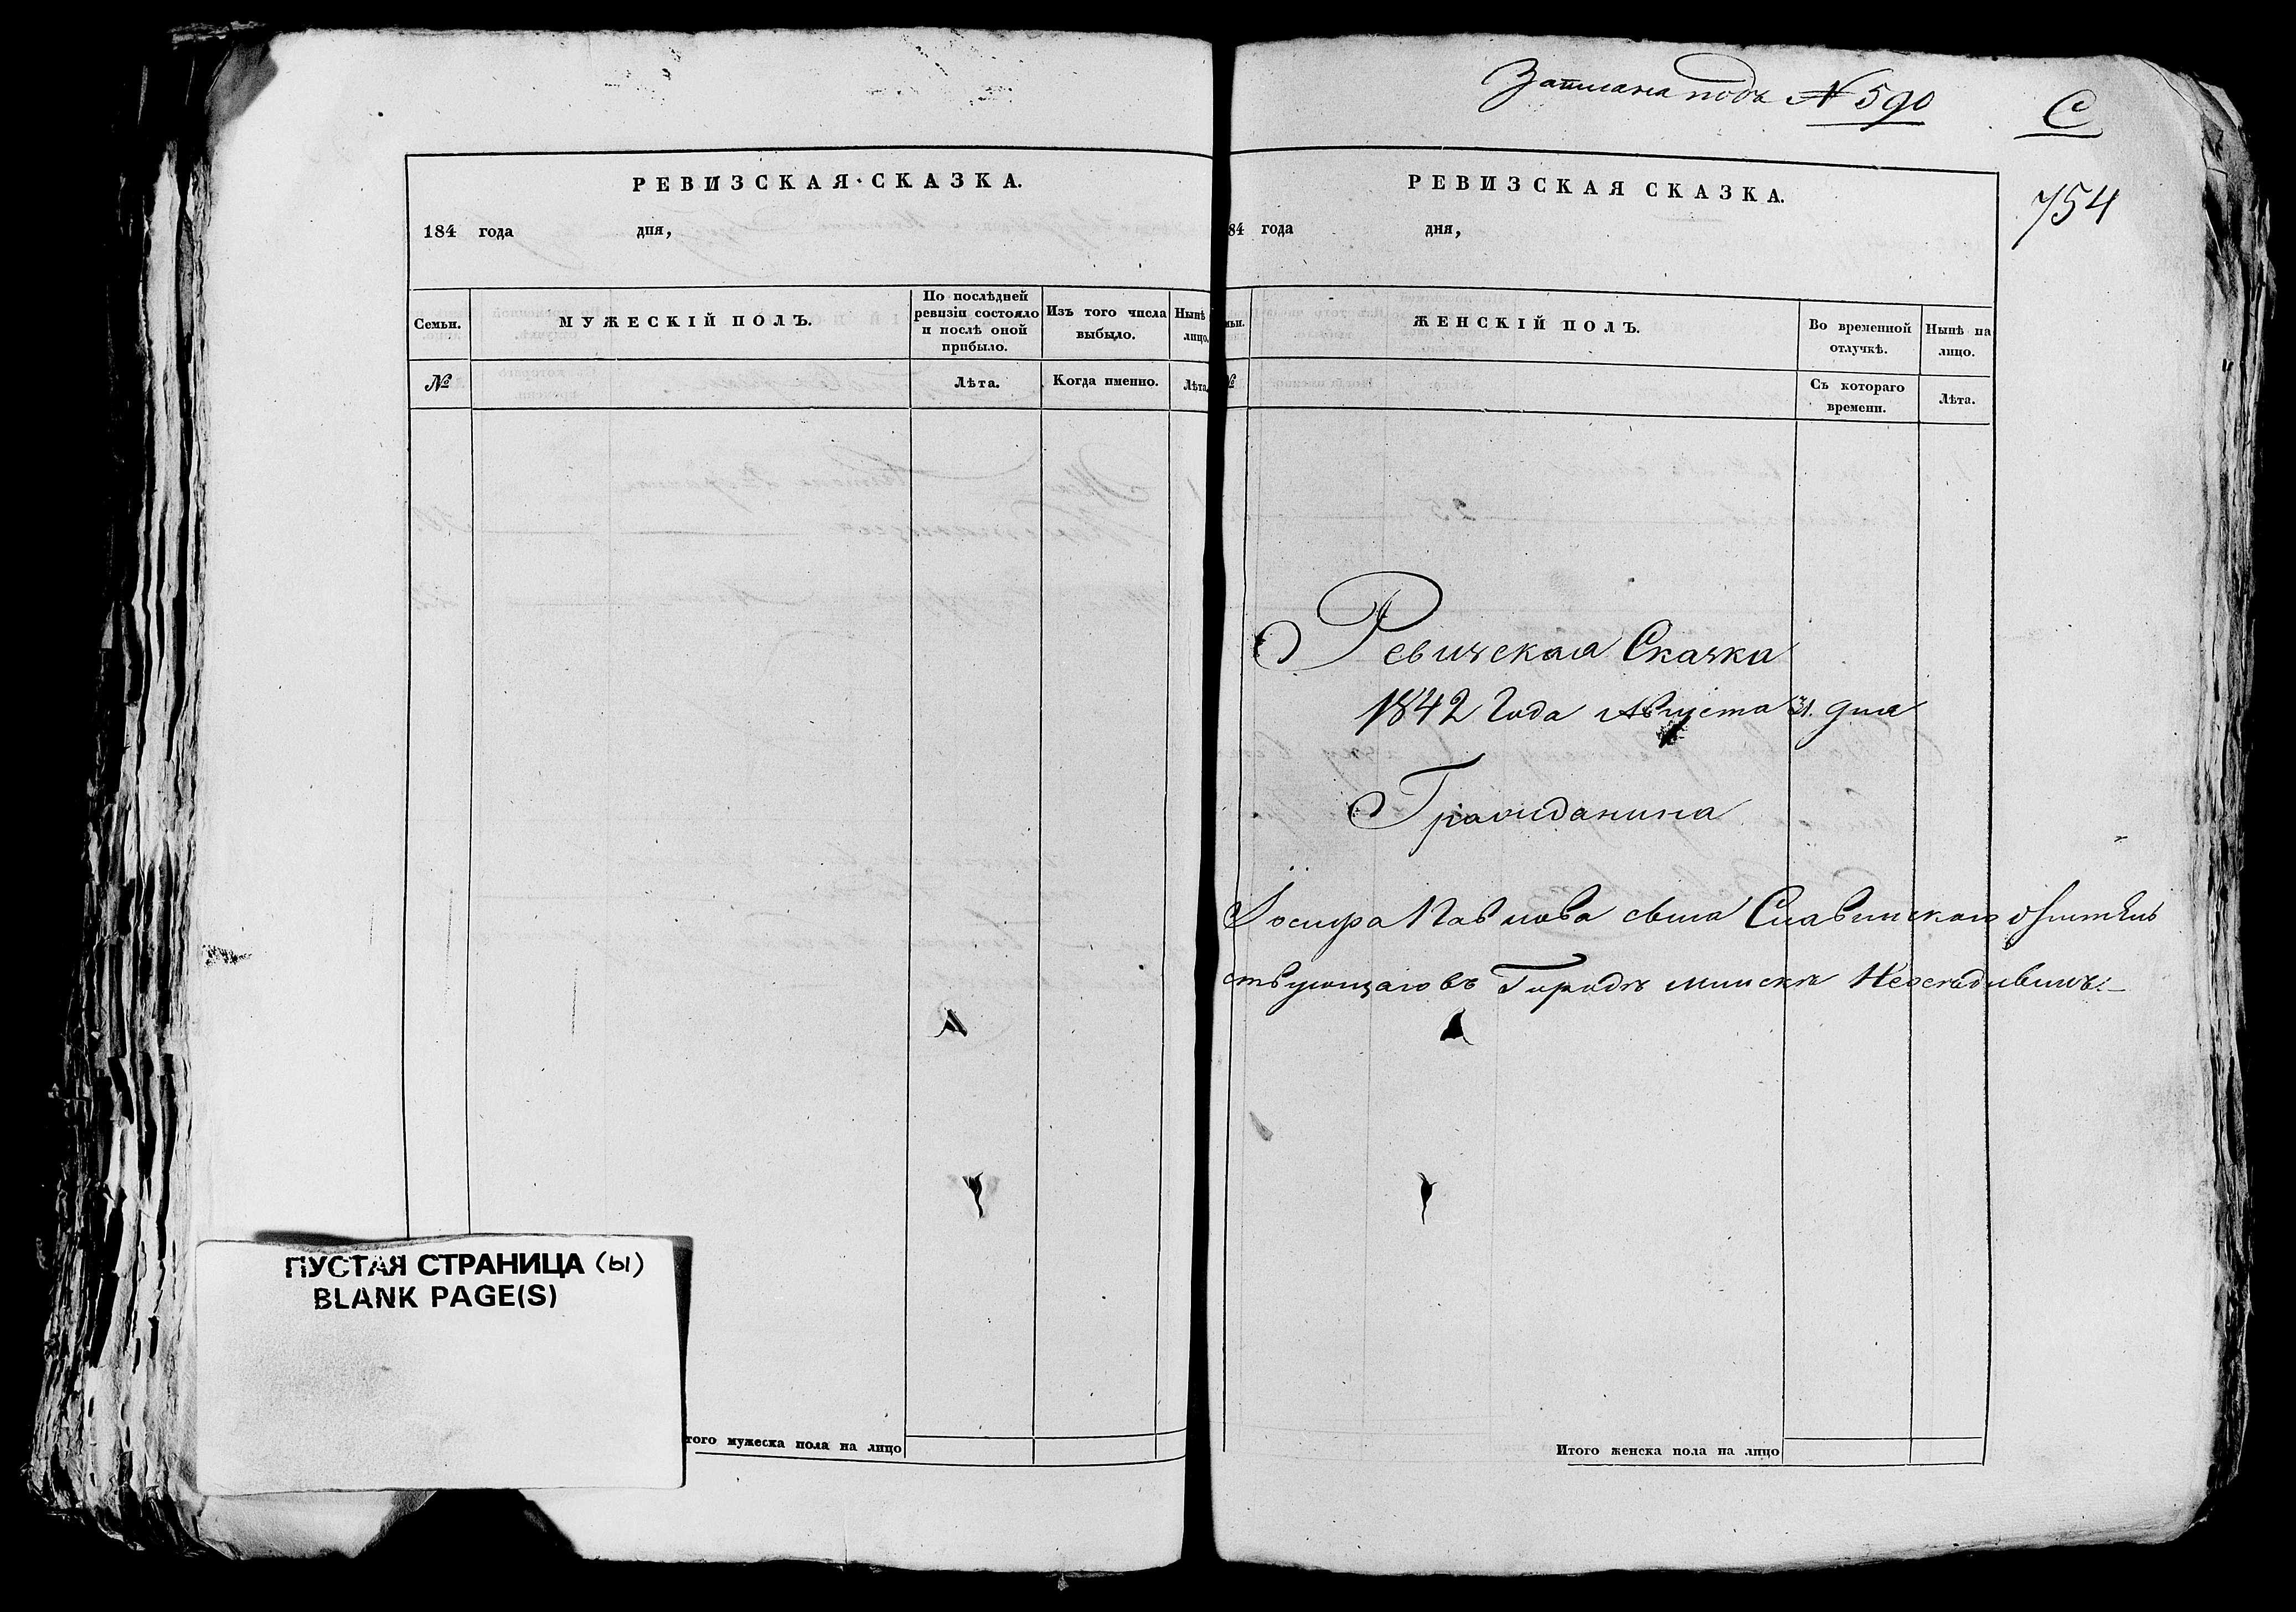 РЕВИЗСКАЯ СКАЗКА.
184 года дня,
Семьи.
МУЖЕСКІЙ ПОЛЪ.
По послѣдней ревизіи состояло и послѣ оной прибыло.
Изъ того числа выбыло.
Нынѣ лицо.
№
Лѣта.
Когда именно.
Лѣта.
ПУСТАЯ СТРАНИЦА (ы)
BLANK PAGE(S)
того мужеска пола на лицо
Записана подъ № 590
С
754
РЕВИЗСКАЯ СКАЗКА.
84 года дня,
ЖЕНСКІЙ ПОЛЪ.
Во временной отлучкѣ.
Нынѣ на лицо.
Съ котораго времени.
Лѣта.
Ревизская Сказка
1842 Года Августа 31. дня
Гражданина
Іосифа Павлова сына Славинскаго жител
ствующаго въ Городѣ Минскѣ
Итого женска пола на лицо